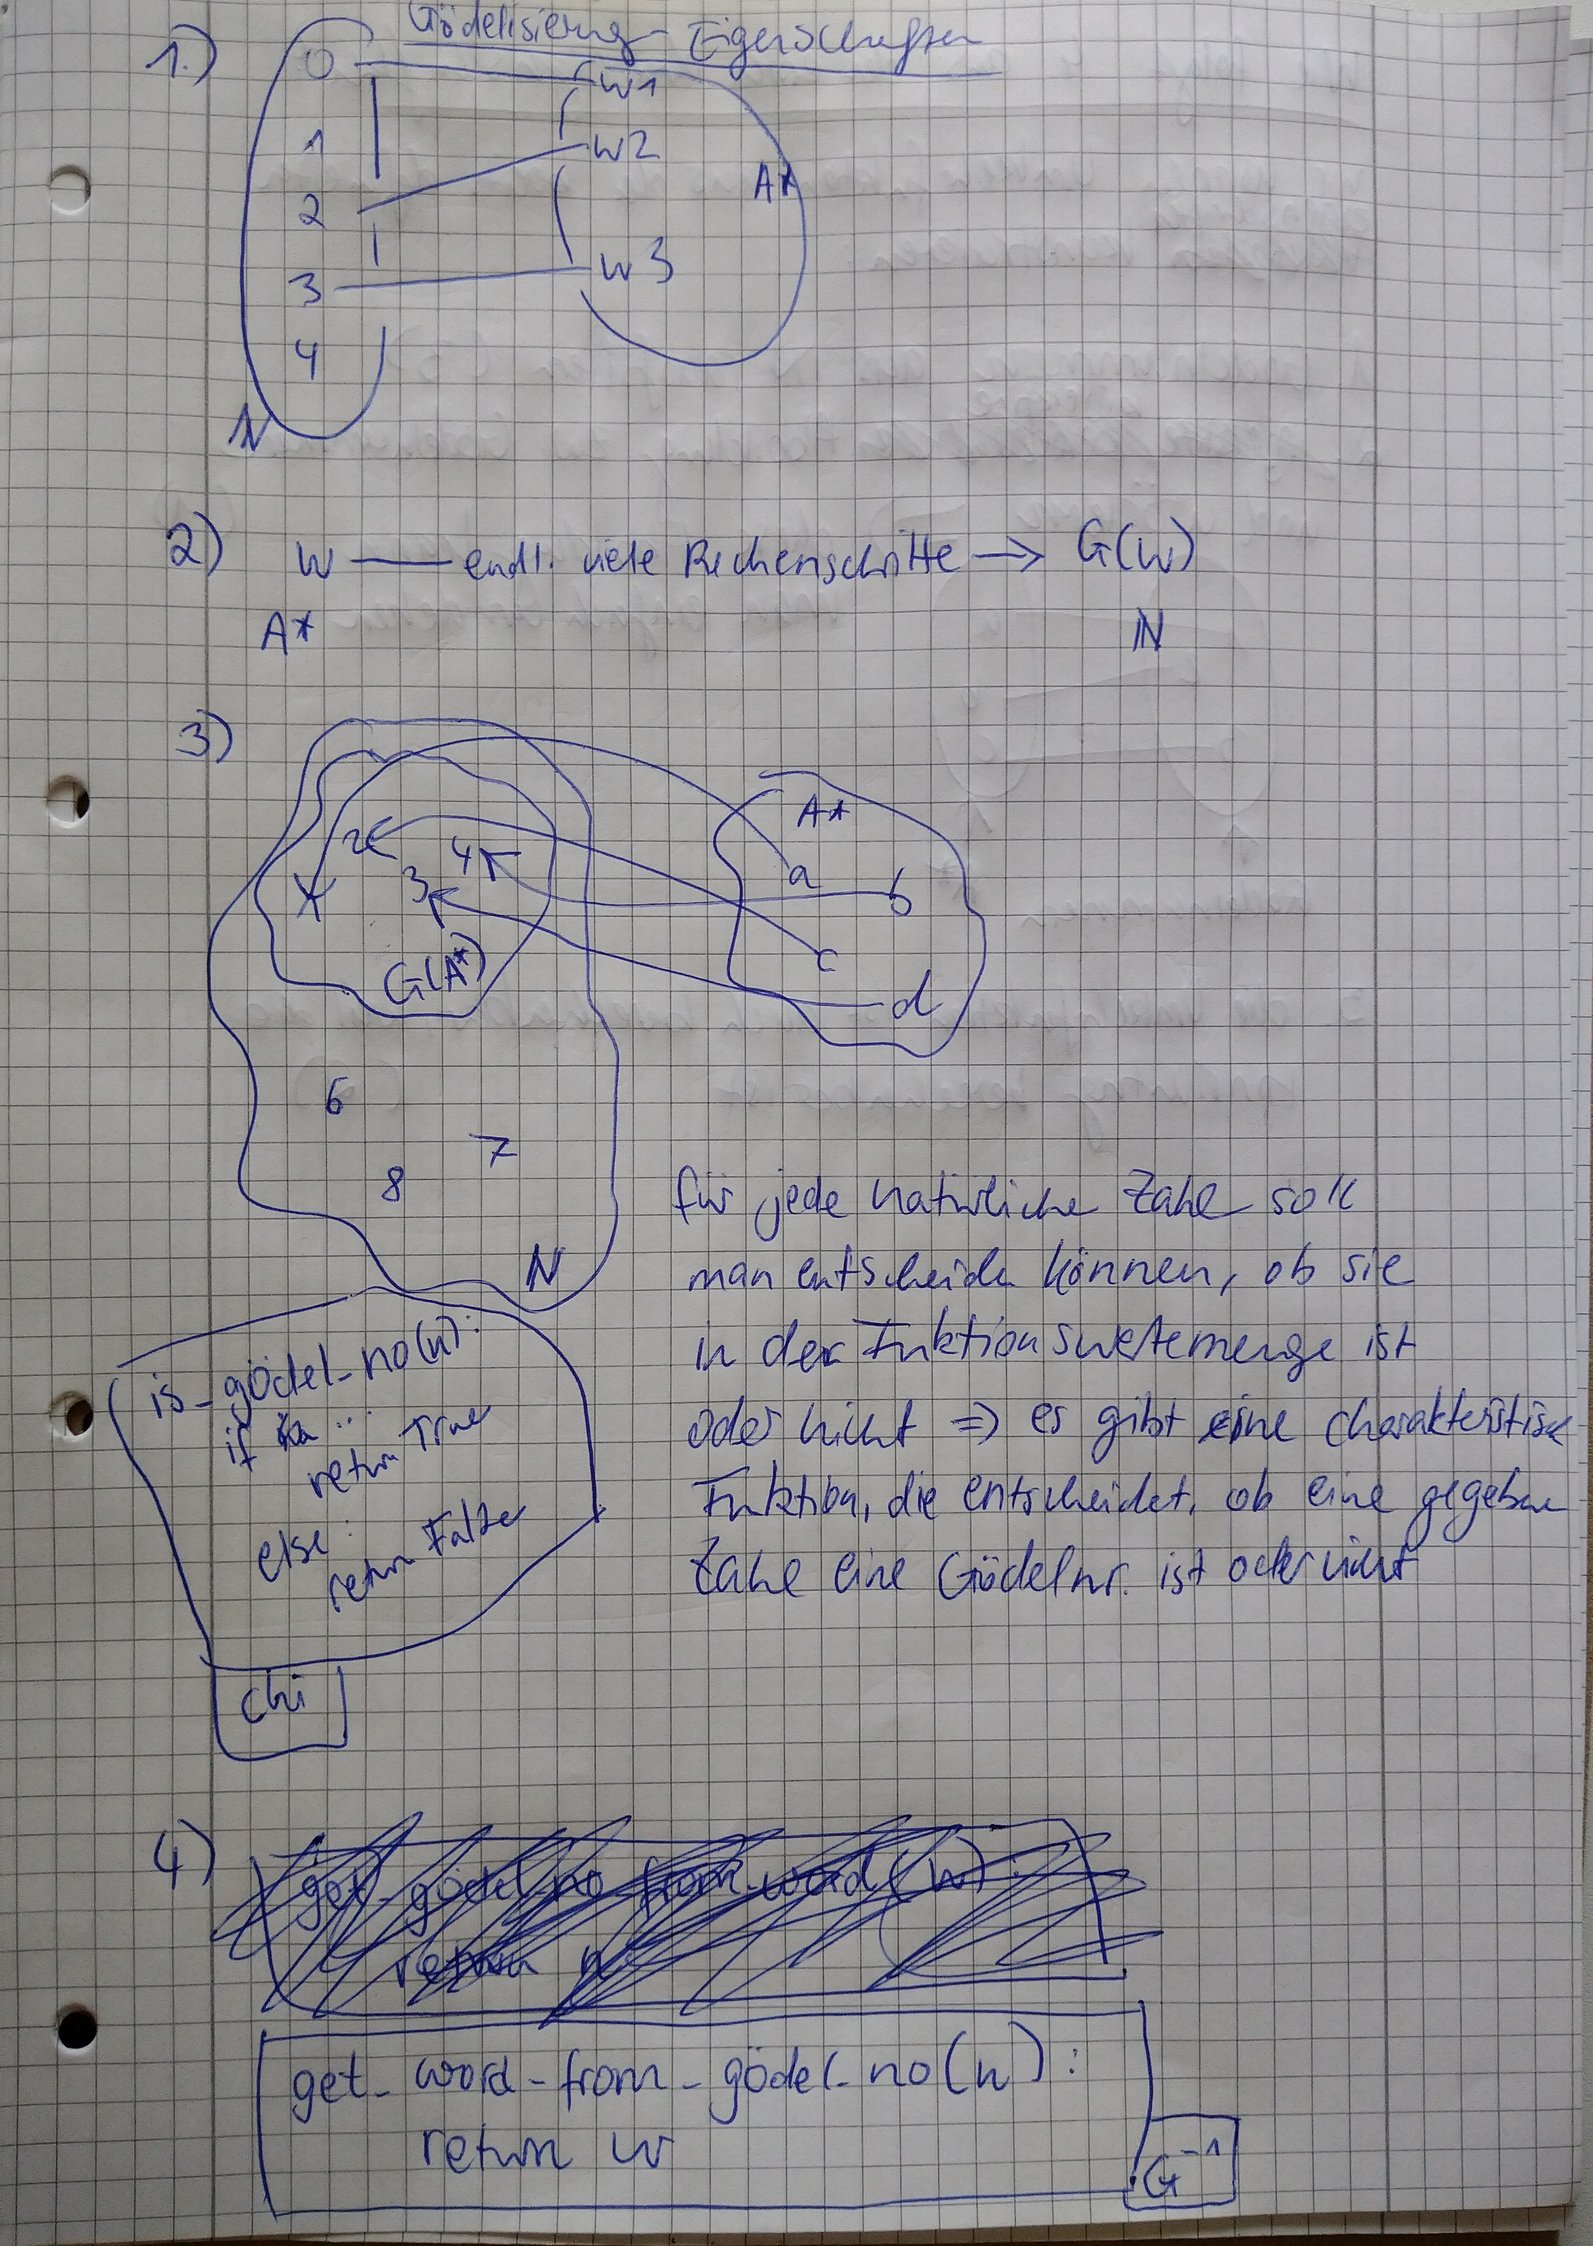 Gödelisierung - Eigenschaften
1.)
0
w1
1
w2
A*
2
3
w3
4
N
2) w — endl. viele Rechenschritte → G(w)
A* N
3)
A*
2
4
a
3
b
c
G(A*)
d
6
7
8
N
für jede natürliche Zahl soll
man entscheiden können, ob sie
in der Funktionswertemenge ist
oder nicht ⇒ es gibt eine charakteristische
Funktion, die entscheidet, ob eine gegebene
Zahl eine Gödelnr. ist oder nicht
is_gödel_no(n):
if ...:
return True
else:
return False
chi
4)
get_gödel_no_from_word(w):
return n
get_word_from_gödel_no(n):
return w
G⁻¹